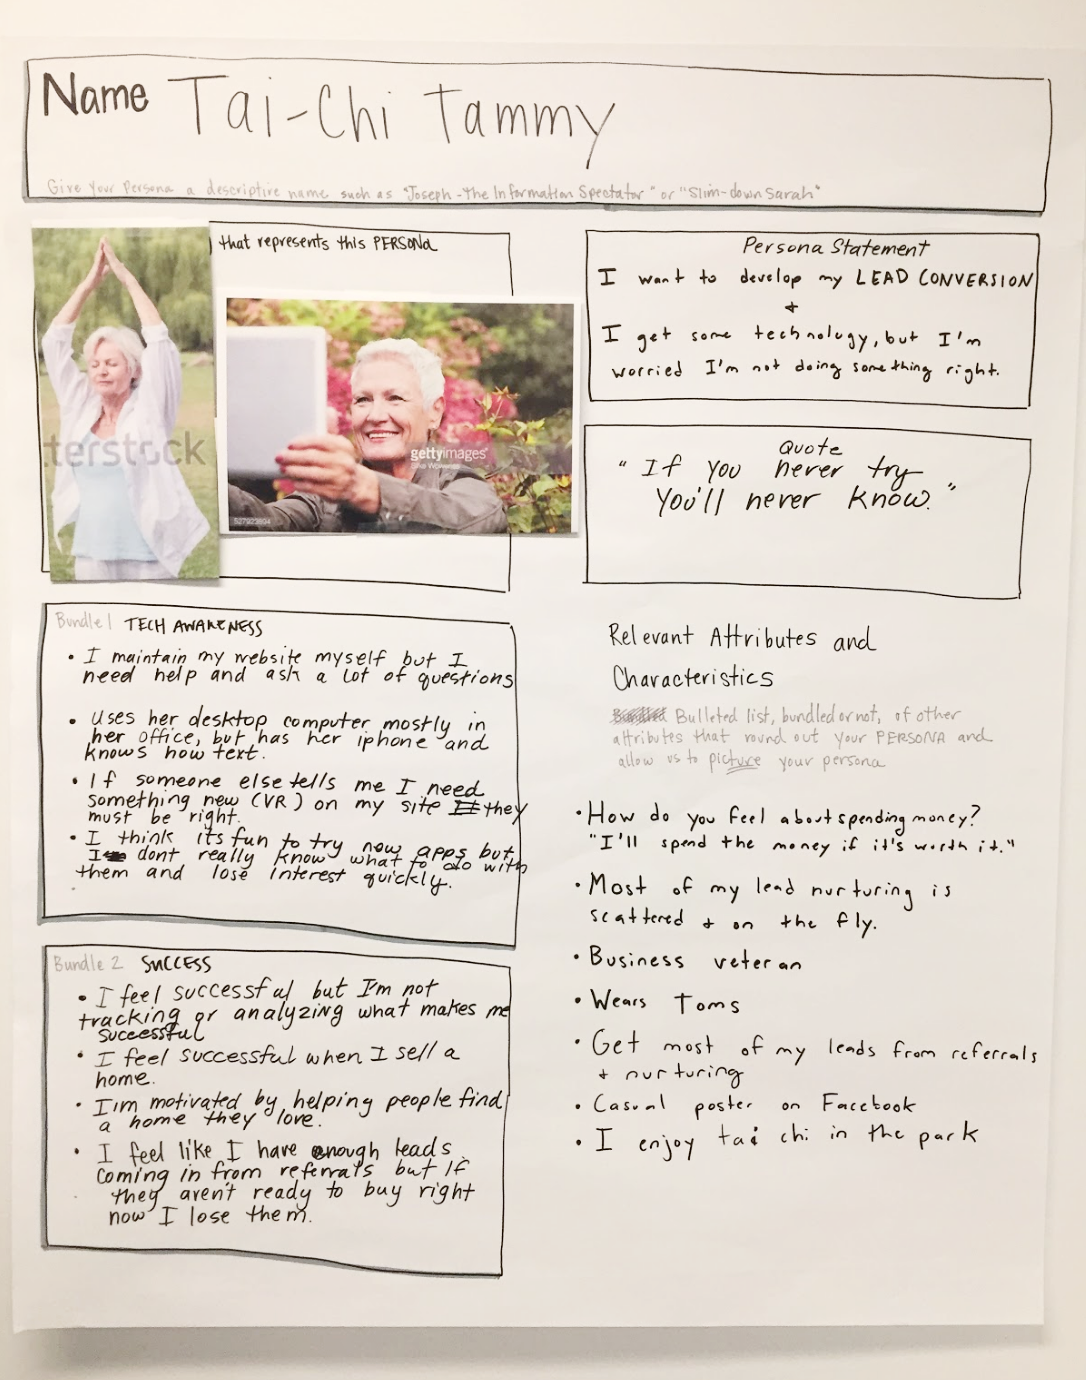 Name Tai-Chi Tammy
Give Your Persona a descriptive name such as "Joseph-The Information Spectator" or "Slim-down Sarah"
that represents this PERSONA
terstock
gettyimages
527923894
Persona Statement
I want to develop my LEAD CONVERSION
+
I get some technology, but I'm
worried I'm not doing something right.
Quote
"If you never try
You'll never know."
Bundle 1 TECH AWARENESS
• I maintain my website myself but I
need help and ask a lot of questions
• Uses her desktop computer mostly in
her office, but has her iphone and
knows how text.
• If someone else tells me I need
something new (VR) on my site they
must be right.
• I think its fun to try now apps but
I dont really know what to do with
them and lose interest quickly.
Bundle 2 SUCCESS
• I feel successful but I'm not
tracking or analyzing what makes me
successful
• I feel successful when I sell a
home.
• I'm motivated by helping people find
a home they love.
• I feel like I have enough leads
coming in from referrals but if
they aren't ready to buy right
now I lose them.
Relevant Attributes and
Characteristics
Bulleted list, bundled or not, of other
attributes that round out your PERSONA and
allow us to picture your persona
• How do you feel about spending money?
"I'll spend the money if it's worth it."
• Most of my lead nurturing is
scattered + on the fly.
• Business veteran
• Wears Toms
• Get most of my leads from referrals
+ nurturing
• Casual poster on Facebook
• I enjoy tai chi in the park